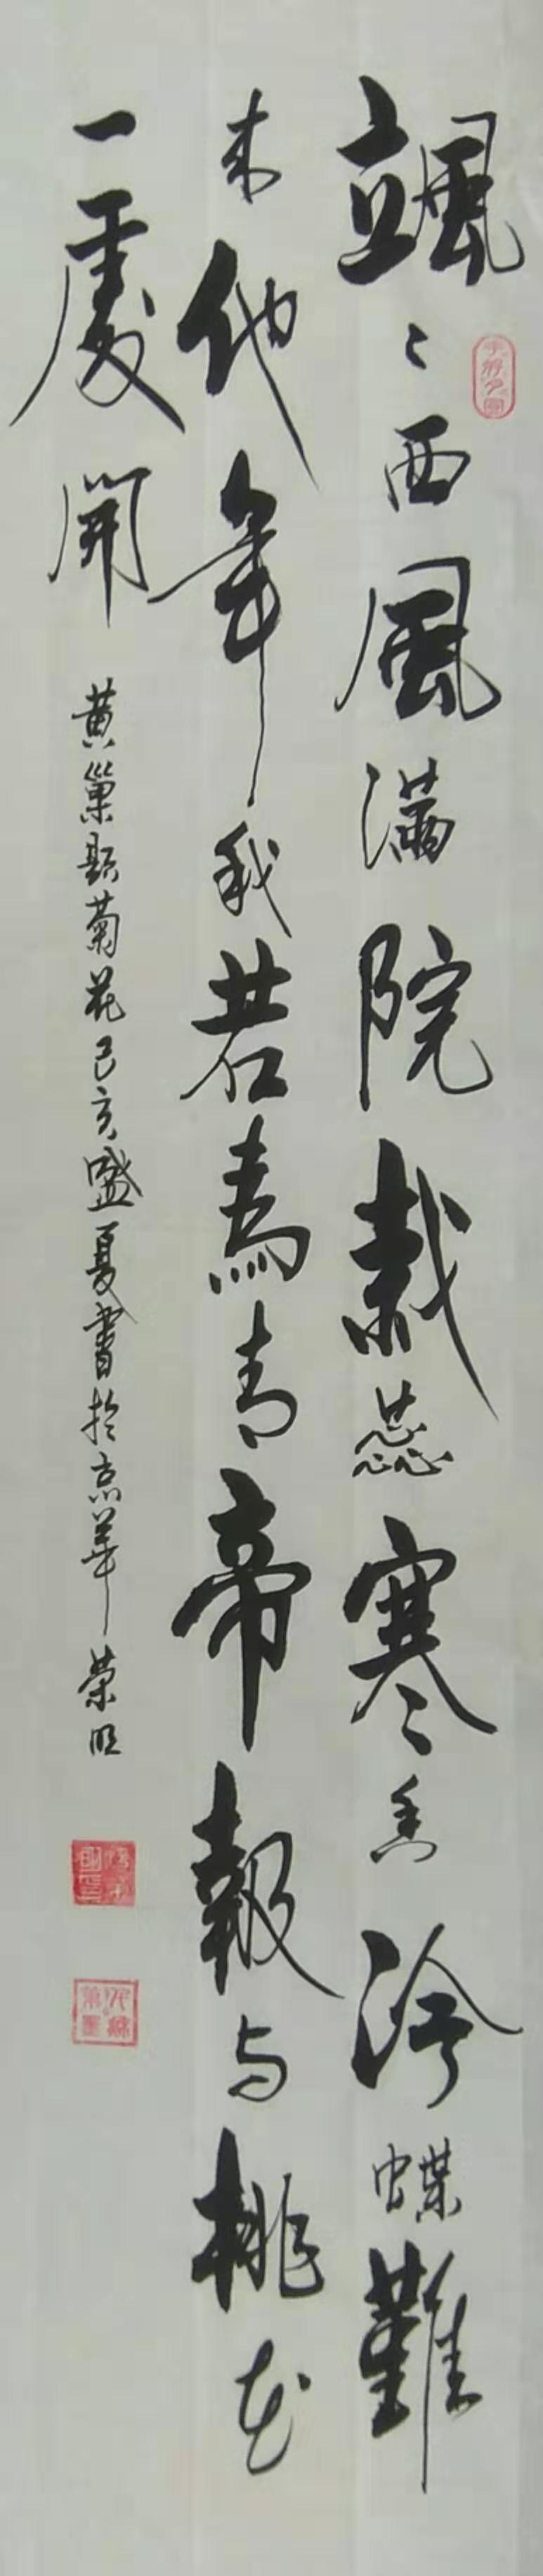 颯〻西風滿院栽蕊寒香冷蝶難
来他年我若為青帝報与桃花
一處開
黄巢題菊花己亥盛夏書於京華 榮旺